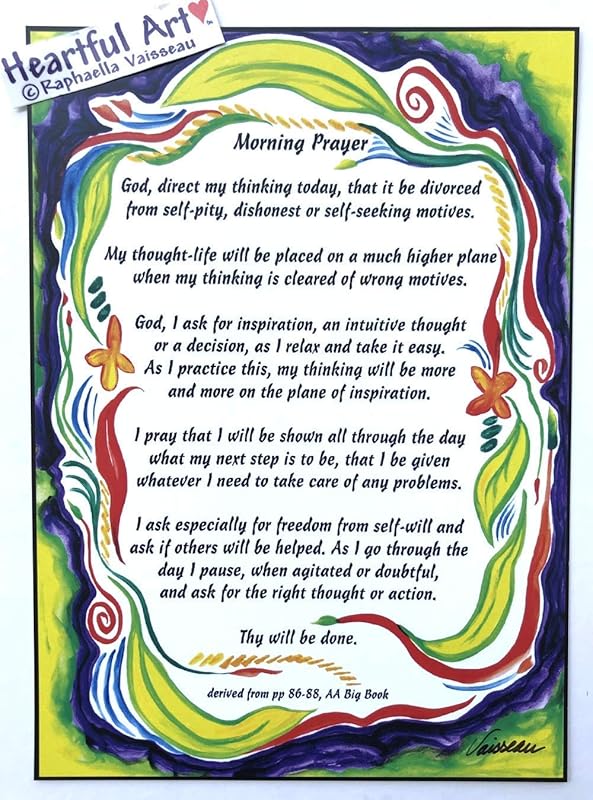 Heartful Art
© Raphaella Vaisseau
Morning Prayer
God, direct my thinking today, that it be divorced
from self-pity, dishonest or self-seeking motives.
My thought-life will be placed on a much higher plane
when my thinking is cleared of wrong motives.
God, I ask for inspiration, an intuitive thought
or a decision, as I relax and take it easy.
As I practice this, my thinking will be more
and more on the plane of inspiration.
I pray that I will be shown all through the day
what my next step is to be, that I be given
whatever I need to take care of any problems.
I ask especially for freedom from self-will and
ask if others will be helped. As I go through the
day I pause, when agitated or doubtful,
and ask for the right thought or action.
Thy will be done.
derived from pp 86-88, AA Big Book
Vaisseau